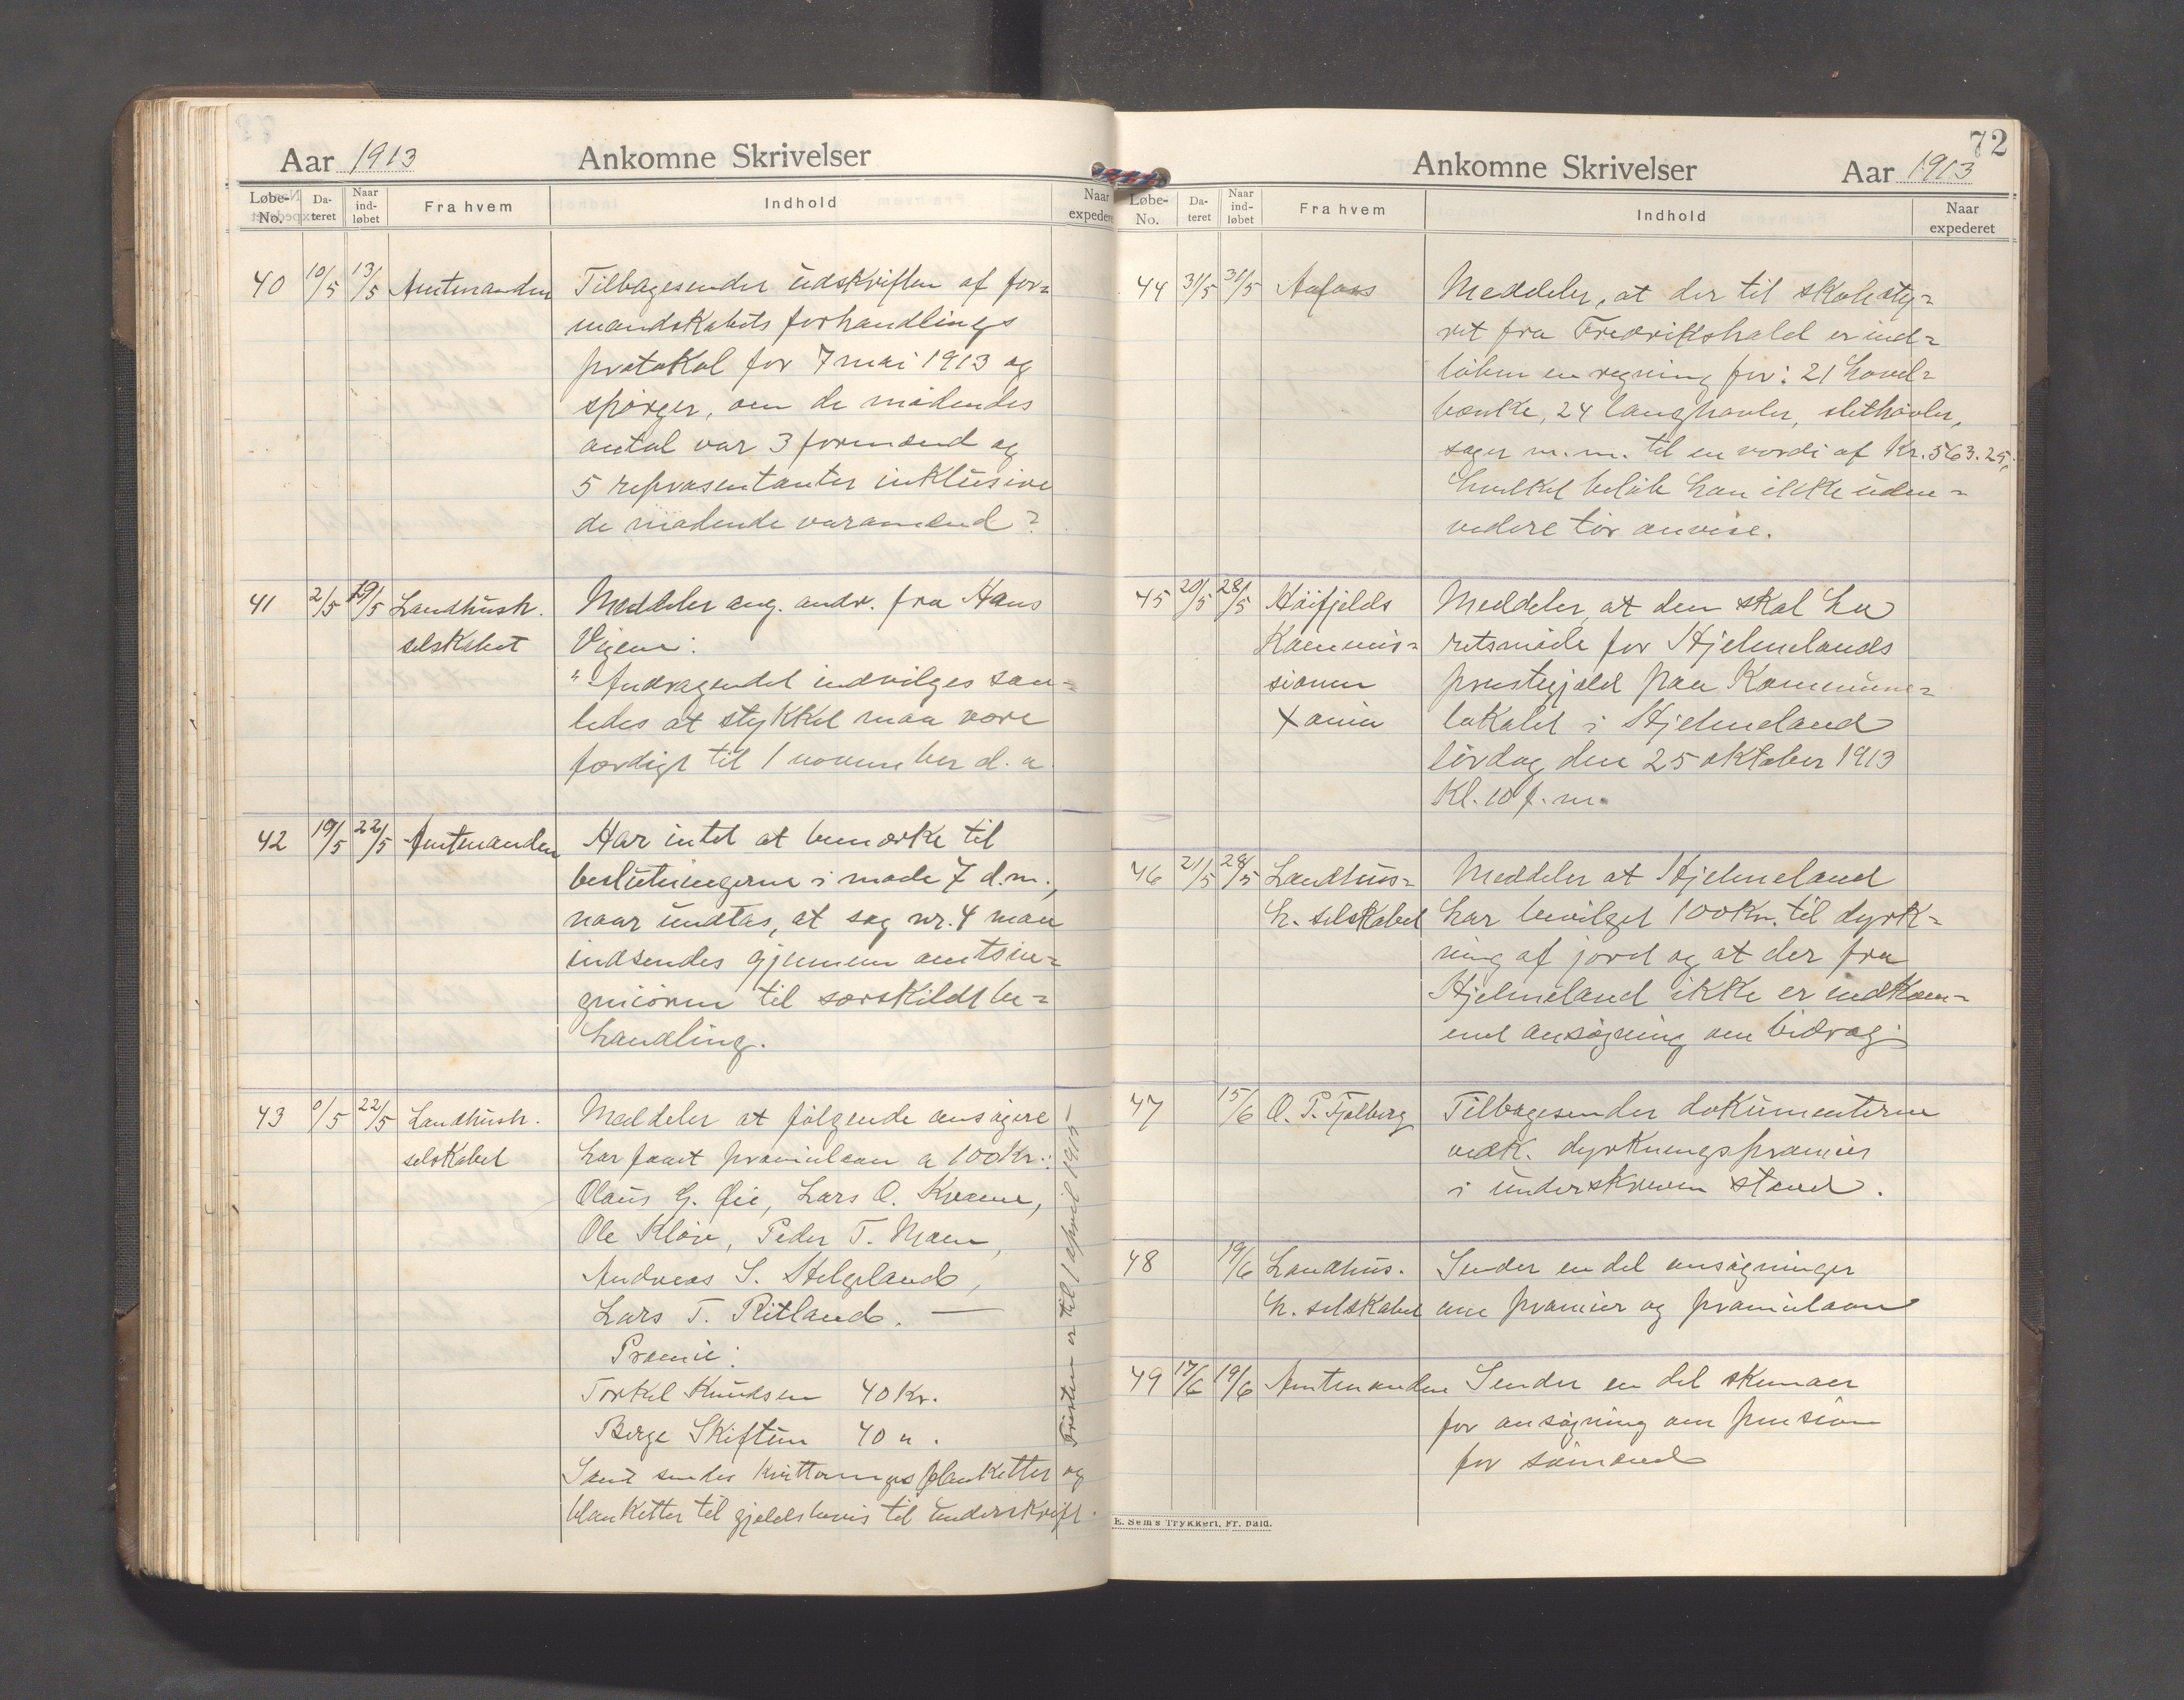 Aar 1913 Ankomne Skrivelser
Løbe-No. Dateret Naar indløbet Fra hvem Indhold Naar expederet
40 10/5 13/5 Amtmanden Tilbagesender udskriften af for=
mandskabets forhandlings
protokol for 7 mai 1913 og
spørger, om de mødendes
antal var 3 formænd og
5 repræsentanter inklusive
de mødende varamænd?
41 2/5 19/5 Landhush. Meddeler ang. andr. fra Hans
selskabet Vigene:
"Andragendet indvilges saa=
ledes at stykket maa være
færdigt til 1 november d. a.
42 19/5 22/5 Amtmanden Har intet at bemærke til
beslutningerne i møde 7 d.m.,
naar undtas, at sag nr. 4 maa
indsendes gjennem amtsin=
geniøren til særskildt be=
handling.
43 /5 22/5 Landhush. Meddeler at følgende ansøgere
selskabet har faaet præmielaan a 100 Kr.:
Olaus G. Øie, Lars O. Kvame,
Ole Kløve, Peder T. Moen,
Andreas S. Helgeland,
Lars T. Ritland. —
Præmie:
Torkel Knudsen 40 Kr.
Berge Skiftun 40 " .
Samt sendes kvitteringsblanketter og
blanketter til gjeldsbevis til underskrift.
Fristen er til 1 april 1915 —
72
Ankomne Skrivelser Aar 1913
Løbe-No. Dateret Naar indløbet Fra hvem Indhold Naar expederet
44 31/5 31/5 Meddeler, at der til skolesty=
ret fra Fredrikshald er ind=
løben en regning for: 21 høvel=
bænke, 24 langhøvler, slethøvler,
sager m.m. til en værdi af Kr. 563.25,
hvilket beløb han ikke uden=
videre tør anvise.
45 20/5 28/5 Høifjelds Meddeler, at den skal ha
Kommis= retsmøde for Hjelmelands
sionen præstegjæld paa Kommune=
Xania lokalet i Hjelmeland
lørdag den 25 oktober 1913
Kl. 10 f. m.
46 21/5 28/5 Landhus= Meddeler at Hjelmeland
h. selskabet har bevilget 100 Kr. til dyrk=
ning af jord og at der fra
Hjelmeland ikke er indkom=
met ansøgning om bidrag.
47 15/6 O. P. Fjelberg Tilbagesender dokumenterne
vedk. dyrkningspræmier
i underskreven stand.
48 19/6 Landhus. Sender en del ansøgninger
h. selskabet om præmier og præmielaan
49 17/6 19/6 Amtmanden Sender en del skemaer
for ansøgning om pension
for sømænd
E. Sem's Trykkeri, Fr. hald.